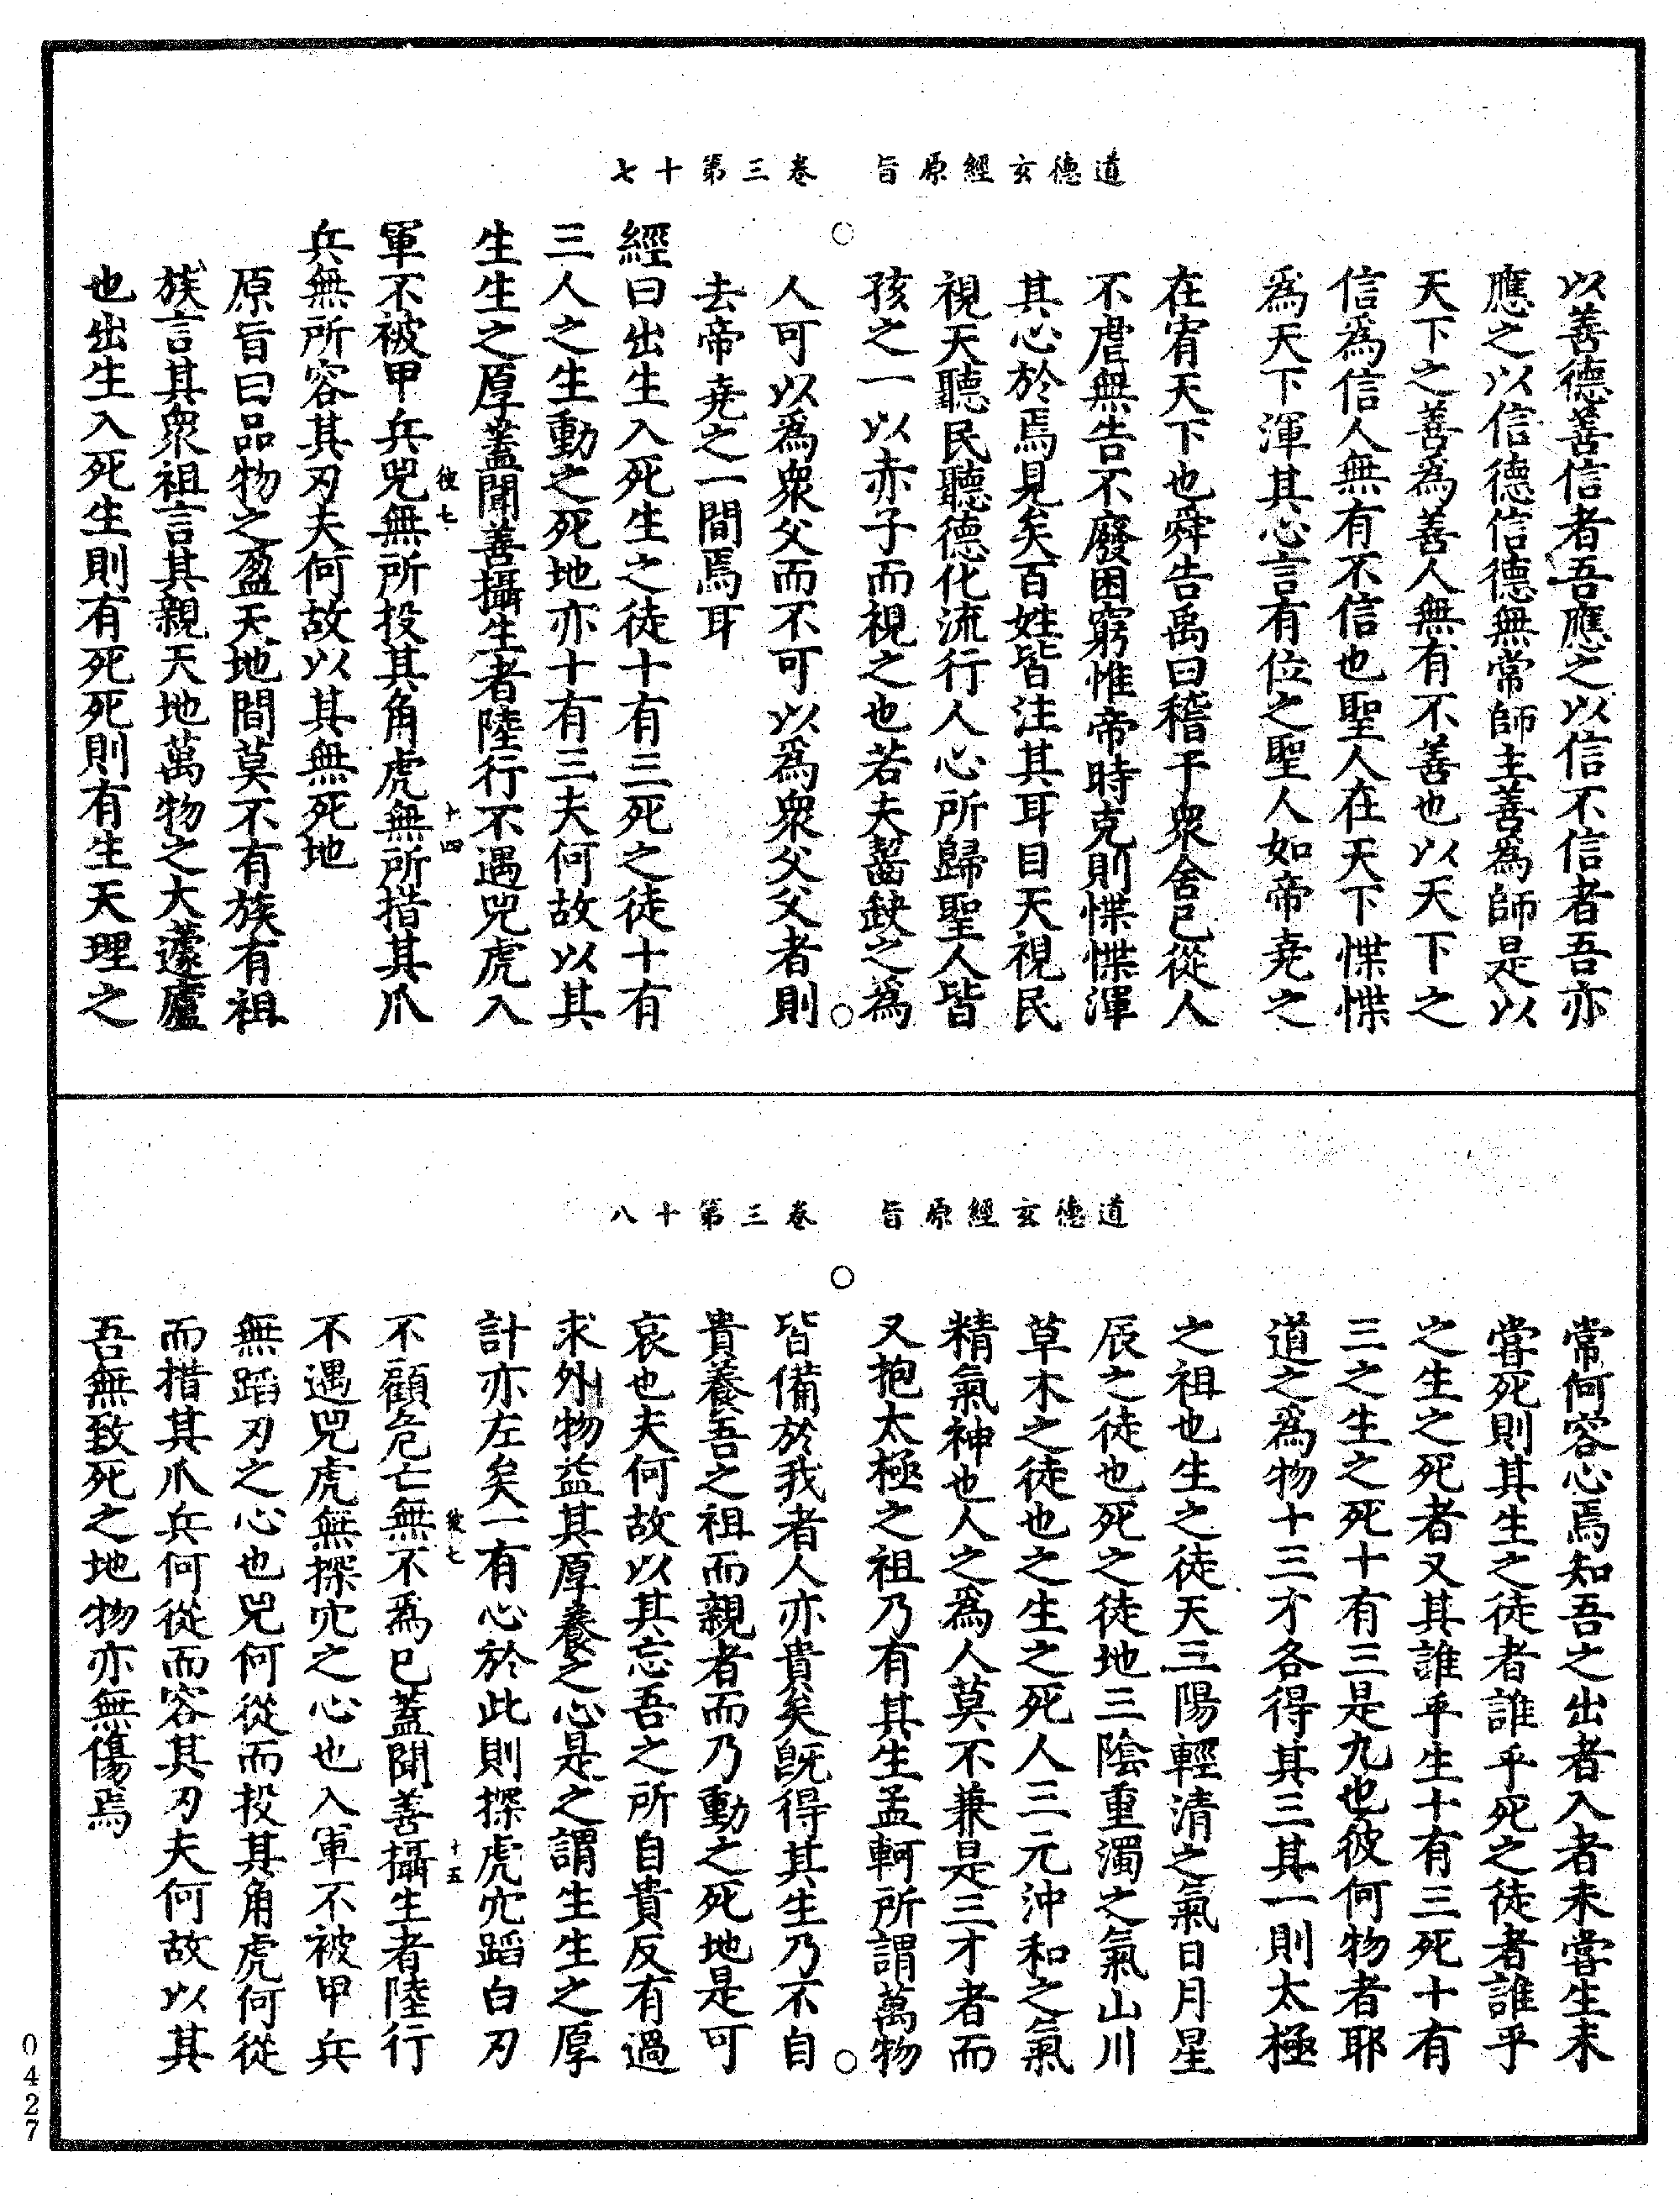 道德玄經原旨　卷三第十七
以善德善信者吾應之以信不信者吾亦
應之以信德信德無常師主善為師是以
天下之善為善人無有不善也以天下之
信為信人無有不信也聖人在天下惵惵
為天下渾其心言有位之聖人如帝堯之
在宥天下也舜告禹曰稽于衆舍己從人
不虐無告不廢困窮惟帝時克則惵惵渾
其心於焉見矣百姓皆注其耳目天視民
視天聽民聽德化流行人心所歸聖人皆
孩之一以赤子而視之也若夫齧缺之為
人可以為衆父而不可以為衆父父者則
去帝堯之一間焉耳
經曰出生入死生之徒十有三死之徒十有
三人之生動之死地亦十有三夫何故以其
生生之厚蓋聞善攝生者陸行不遇兕虎入
彼七　十四
軍不被甲兵兕無所投其角虎無所措其爪
兵無所容其刃夫何故以其無死地
原旨曰品物之盈天地間莫不有族有祖
族言其衆祖言其親天地萬物之大蘧廬
也出生入死生則有死死則有生天理之
道德玄經原旨　卷三第十八
常何容心焉知吾之出者入者未嘗生未
嘗死則其生之徒者誰乎死之徒者誰乎
之生之死者又其誰乎生十有三死十有
三之生之死十有三是九也彼何物者耶
道之為物十三才各得其三其一則太極
之祖也生之徒天三陽輕清之氣日月星
辰之徒也死之徒地三陰重濁之氣山川
草木之徒也之生之死人三元沖和之氣
精氣神也人之為人莫不兼是三才者而
又抱太極之祖乃有其生孟軻所謂萬物
皆備於我者人亦貴矣既得其生乃不自
貴養吾之祖而親者而乃動之死地是可
哀也夫何故以其忘吾之所自貴反有過
求外物益其厚養之心是之謂生生之厚
計亦左矣一有心於此則探虎穴蹈白刃
彼七　十五
不顧危亡無不為已蓋聞善攝生者陸行
不遇兕虎無探穴之心也入軍不被甲兵
無蹈刃之心也兕何從而投其角虎何從
而措其爪兵何從而容其刃夫何故以其
吾無致死之地物亦無傷焉
0427